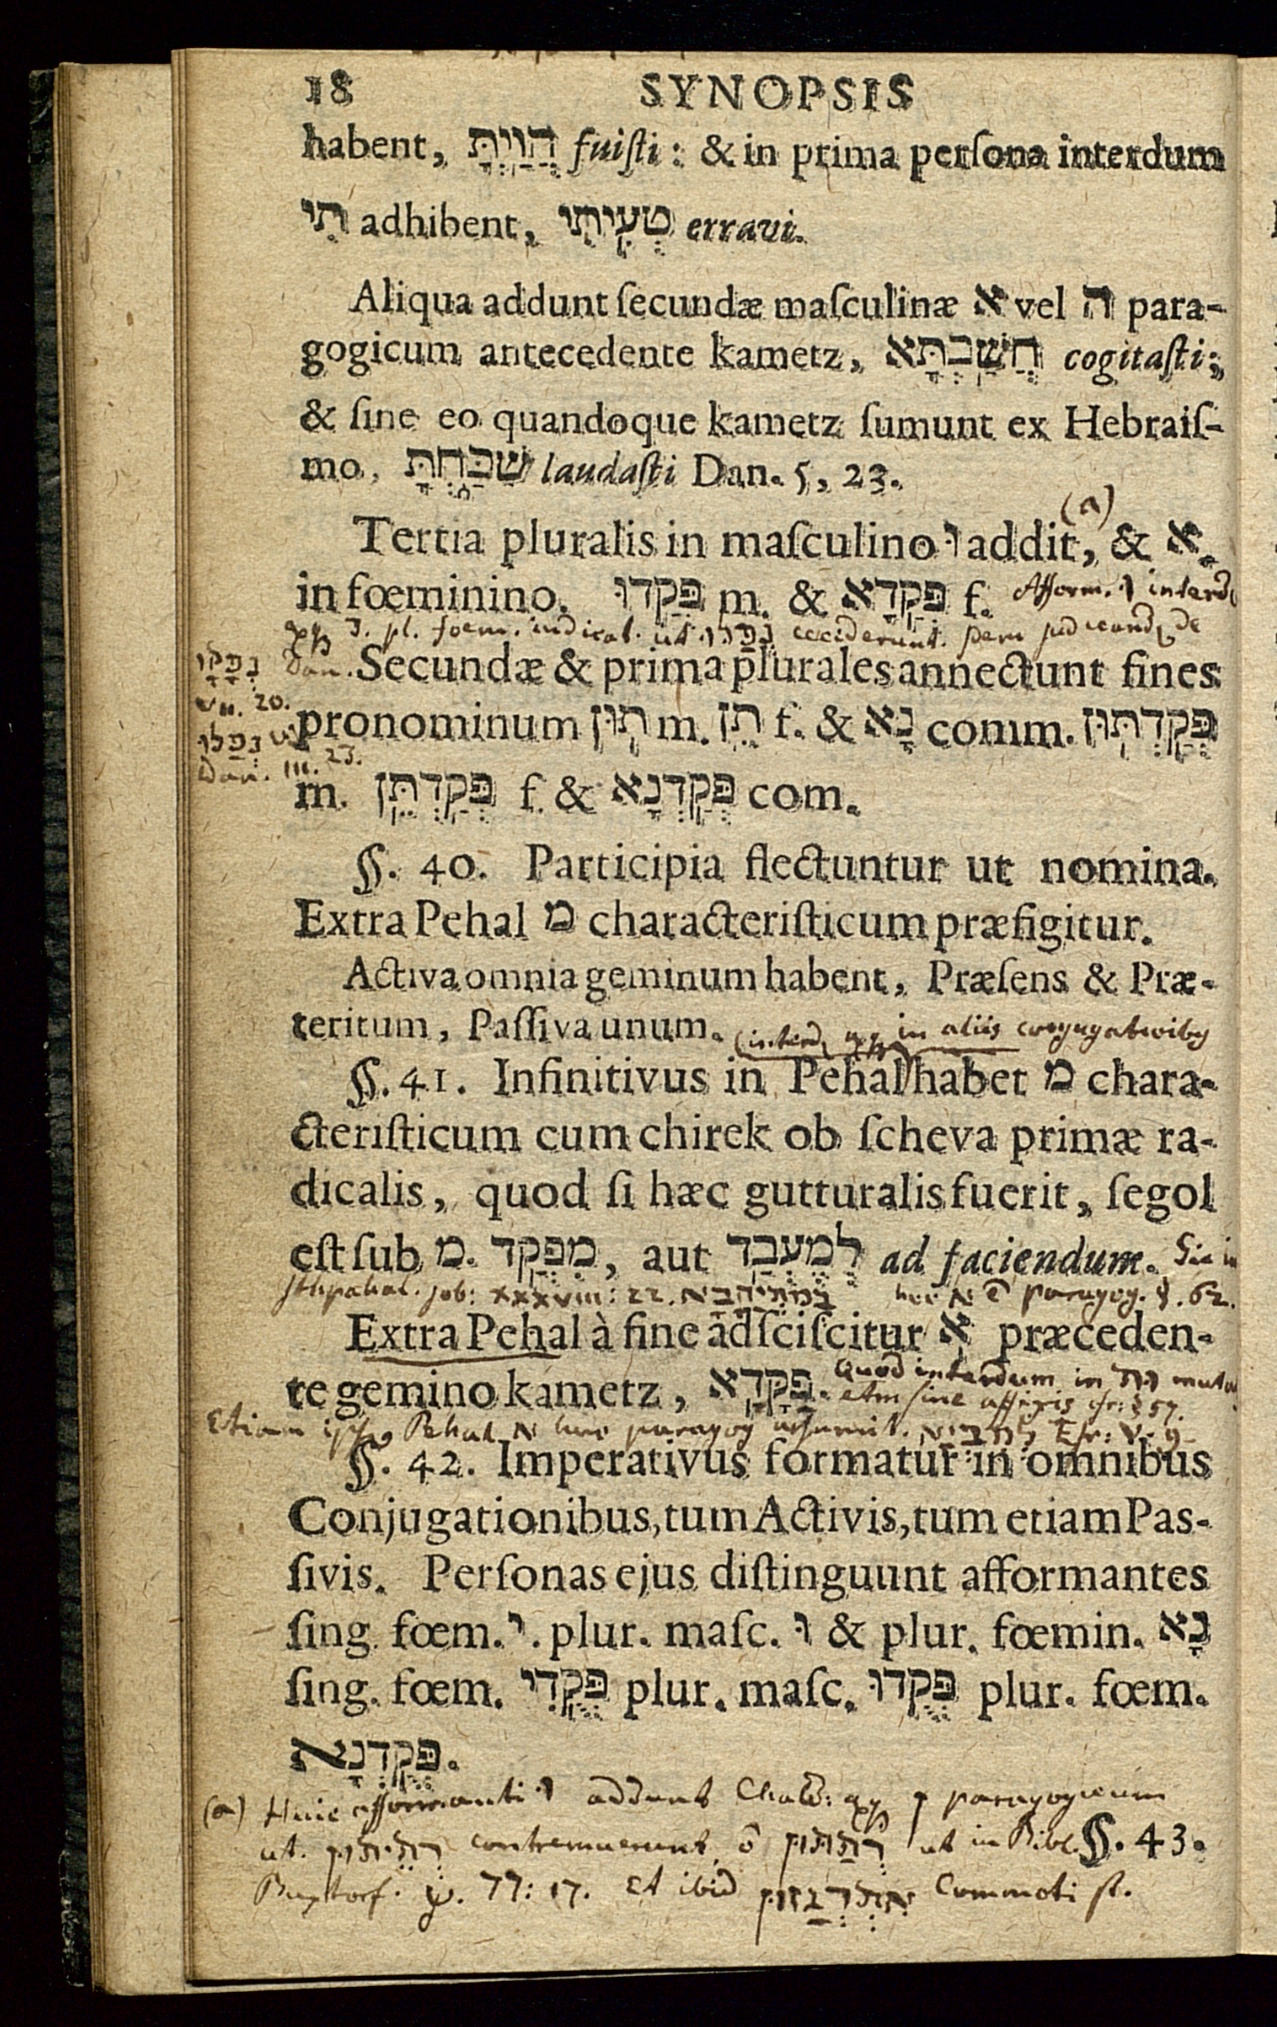 18 SYNOPSIS
habent, הֲוַיְתָּ fuiſti: & in prima perſona interdum
תִי adhibent, טְעָיתִי erravi.
Aliqua addunt ſecundæ maſculinæ א vel ה para-
gogicum antecedente kametz, חֲשַׁבְתָּא cogitaſti;
& ſine eo quandoque kametz ſumunt ex Hebraiſ-
mo, שַׁבַּחְתָּ laudaſti Dan. 5, 23.
(a)
Tertia pluralis in maſculino ו addit, & אָ
in fœminino. פְּקַדוּ m. & פְּקַדָא f. Afform. ו interd
3. pl. foem. indicat. ut נְפַקוּ exciderunt.
נְפַקוּ Dan. Secundæ & prima plurales annectunt fines
VII. 20.
pronominum תּוּן m. תֵּן f. & נָא comm. פְּקַדְתּוּן
נְפַלוּ
Dan. III. 23.
m. פְּקַדְתֵּן f. & פְּקַדְנָא com.
§. 40. Participia flectuntur ut nomina.
Extra Pehal מ characteriſticum præfigitur.
Activa omnia geminum habent, Præſens & Præ-
teritum, Paſſiva unum. in aliis
§. 41. Infinitivus in Pehal habet מ chara-
cteriſticum cum chirek ob ſcheva primæ ra-
dicalis, quod ſi hæc gutturalis fuerit, ſegol
eſt ſub מ. מִפְקַד, aut לְמֶעְבַּד ad faciendum. Sic in
Ithpahal. job: XXXVIII: 22. א paragog. §. 62.
Extra Pehal à fine adſciſcitur א præceden-
te gemino kametz, פַּקָּדָא. Quod interdum in
etm ſine affixis §57.
Etiam Pehal א paragog aſſumit. Eſr: V. 9
§. 42. Imperativus formatur in omnibus
Conjugationibus, tum Activis, tum etiam Paſ-
ſivis. Perſonas ejus diſtinguunt afformantes
ſing. fœm. י. plur. maſc. וּ & plur. fœmin. נָא
ſing. fœm. פְּקֻדִי plur. maſc. פְּקֻדוּ plur. fœm.
פְּקֻדְנָא.
(a) Huic afformanti ו addunt Chald: ן paragogicum
ut. contremuerunt, ut in Bibl. §. 43.
Buxtorf. ψ. 77: 17. Et ibid Commoti ſt.